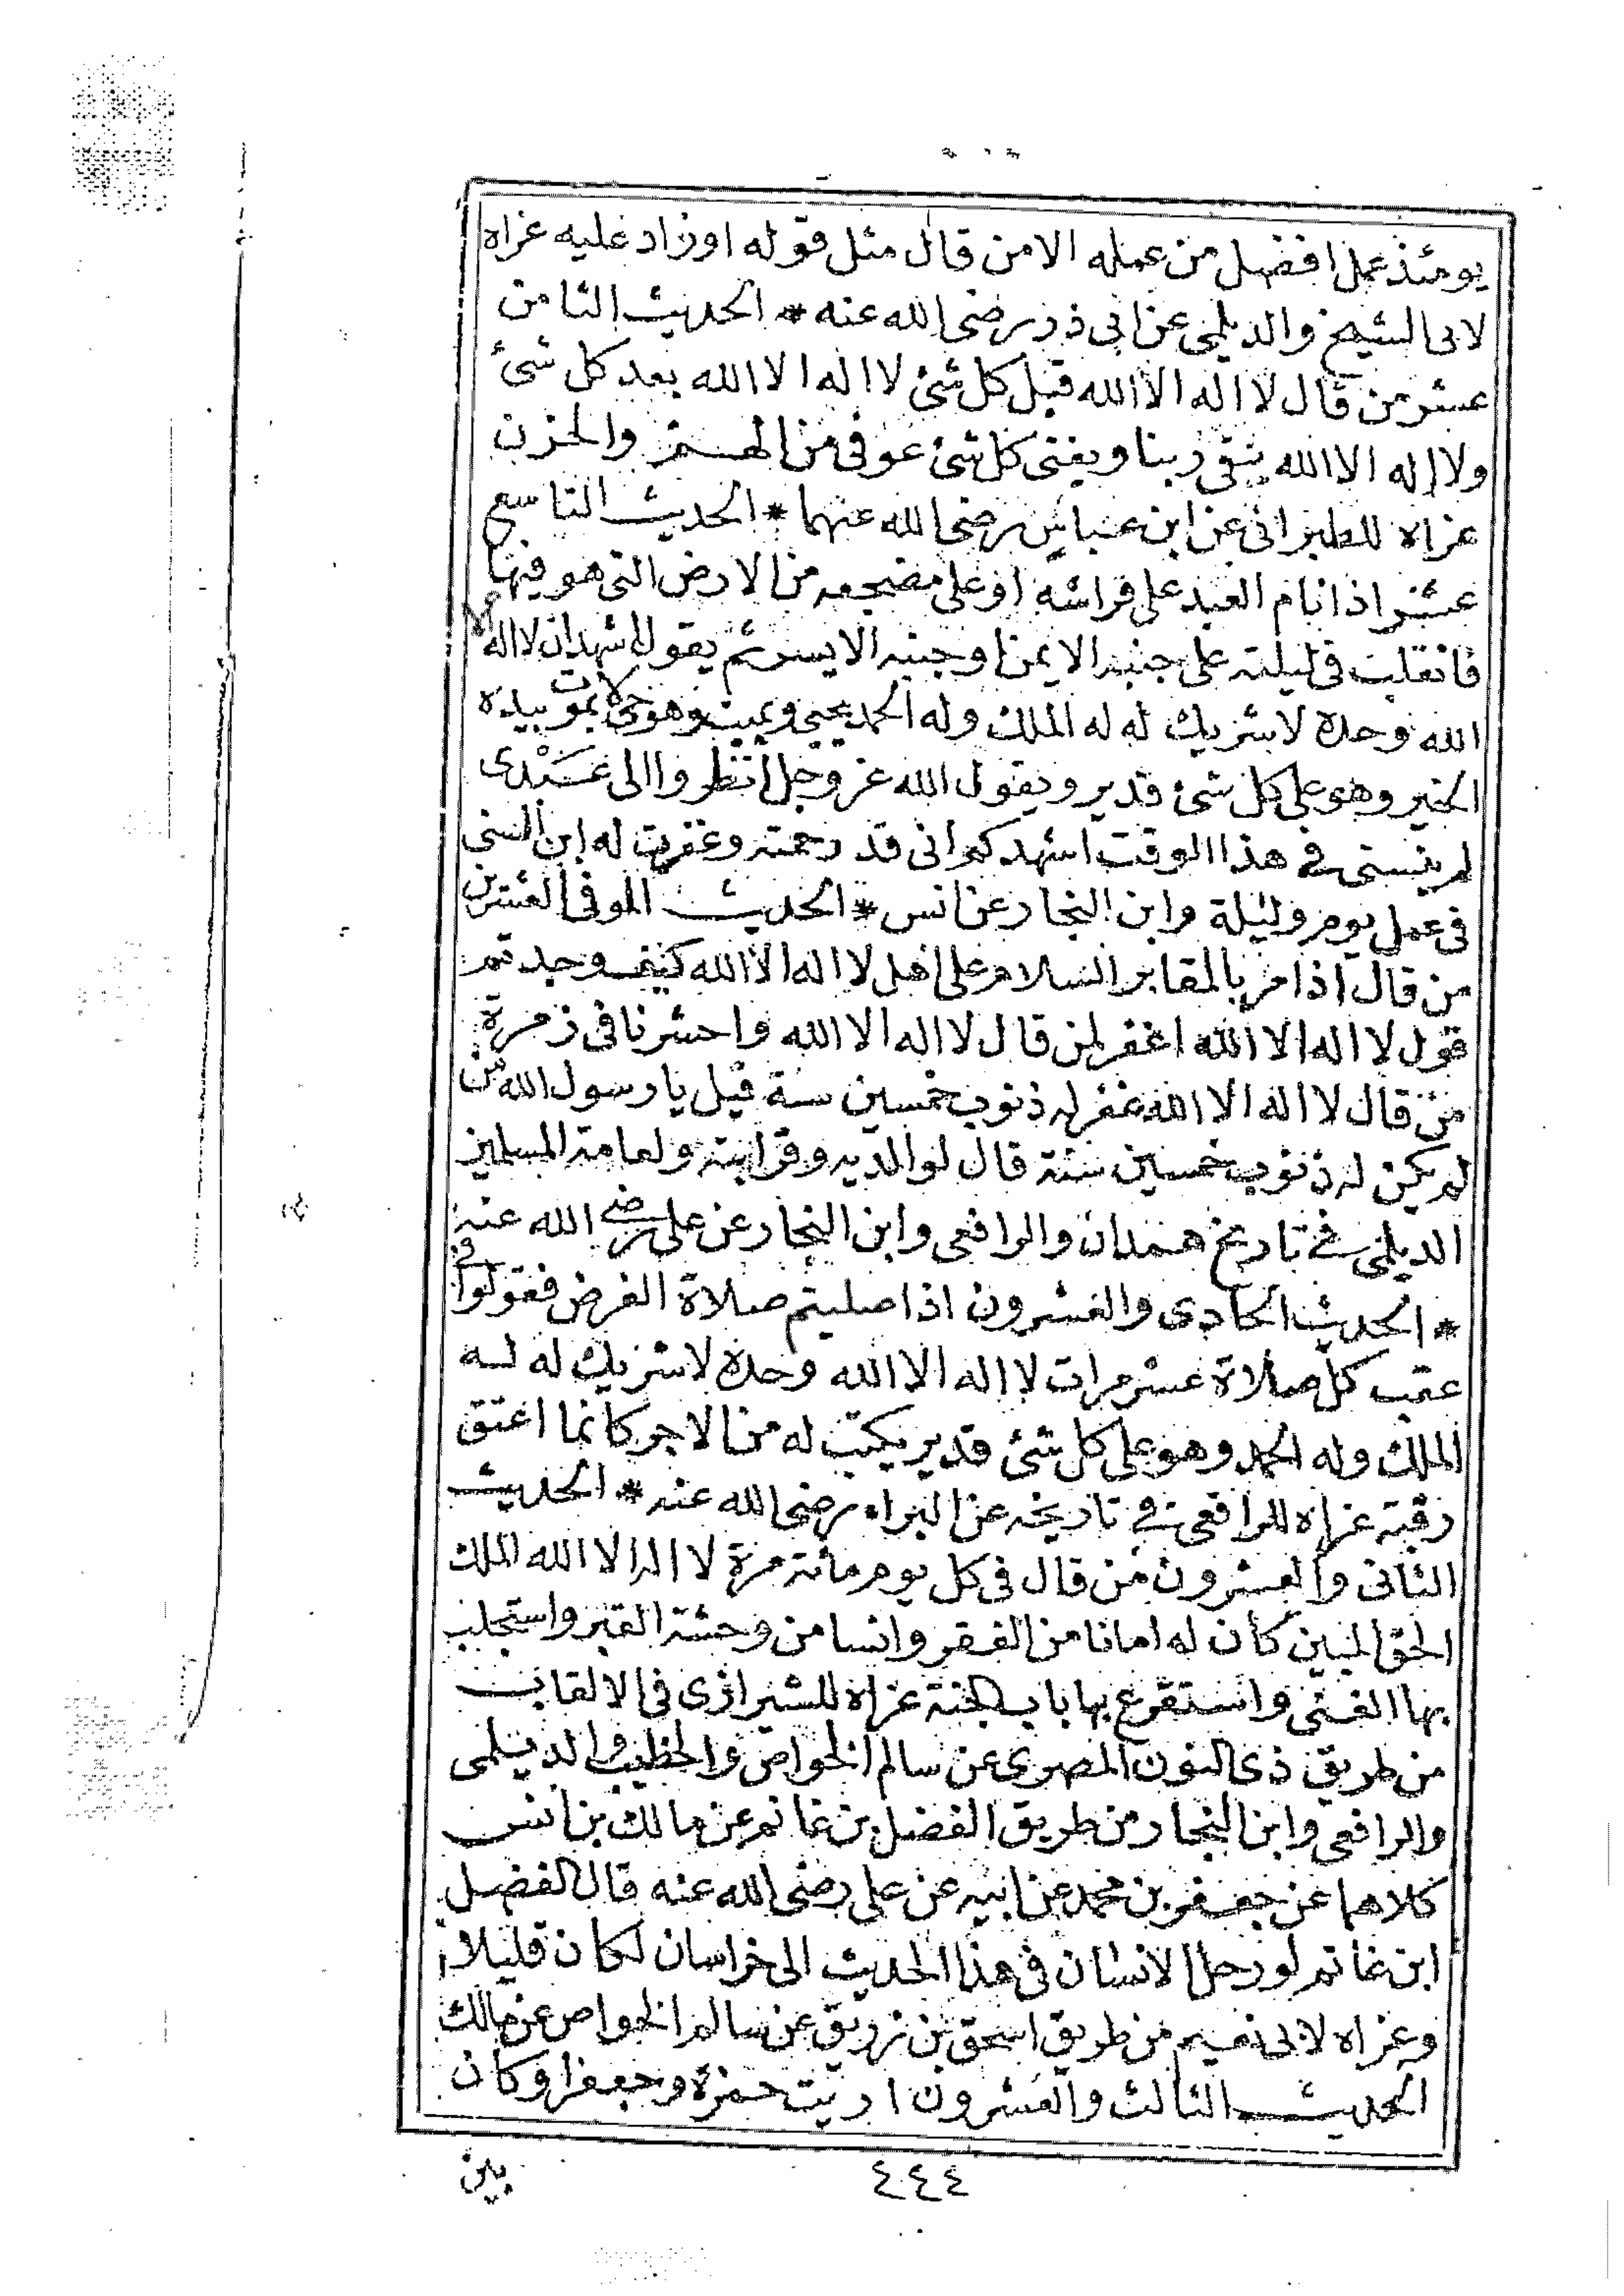 يومئذ عمل افضل من عمله الا من قال مثل قوله او زاد عليه عزاه
لابى الشيخ والديلمى عن ابى ذر رضى الله عنه * الحديث الثامن
عشر من قال لا اله الا الله قبل كل شئ لا اله الا الله بعد كل شئ
ولا اله الا الله يبقى ربنا ويفنى كل شئ عوفى من الهم والحزن
عزاه للطبرانى عن ابن عباس رضى الله عنهما * الحديث التاسع
عشر اذا نام العبد على فراشه او على مضجعه من الارض التى هو فيها
فانقلب فى ليلته على جنبه الايمن او جنبه الايسر ثم يقول اشهد ان لا اله الا
الله وحده لا شريك له له الملك وله الحمد يحيى ويميت وهو حى لا يموت بيده
الخير وهو على كل شئ قدير ويقول الله عز وجل انظروا الى عبدى
لم ينسنى فى هذا الوقت اشهدكم انى قد رحمته وغفرت له ابن السنى
فى عمل يوم وليلة وابن النجار عن انس * الحديث الموفى العشرين
من قال اذا مر بالمقابر السلام على اهل لا اله الا الله كيف وجدتم
قول لا اله الا الله اغفر لمن قال لا اله الا الله واحشرنا فى زمرة
من قال لا اله الا الله غفر له ذنوب خمسين سنة قيل يا رسول الله من
لم يكن له ذنوب خمسين سنة قال لوالديه وقرابته ولعامة المسلمين
الديلمى فى تاريخ همدان والرافعى وابن النجار عن على رضى الله عنه
* الحديث الحادى والعشرون اذا صليتم صلاة الفرض فقولوا فى
عقب كل صلاة عشر مرات لا اله الا الله وحده لا شريك له له
الملك وله الحمد وهو على كل شئ قدير يكتب له من الاجر كانما اعتق
رقبة عزاه للرافعى فى تاريخه عن البراء رضى الله عنه * الحديث
الثانى والعشرون من قال فى كل يوم مائة مرة لا اله الا الله الملك
الحق المبين كان له امانا من الفقر وانسا من وحشة القبر واستجلب
بها الغنى واستقرع بها باب الجنة عزاه للشيرازى فى الالقاب
من طريق ذى النون المصرى عن سالم الخواص والخطيب والديلمى
والرافعى وابن النجار من طريق الفضل بن غانم عن مالك بن انس
كلاهما عن جعفر بن محمد عن ابيه عن على رضى الله عنه قال الفضل
ابن غانم لو رحل الانسان فى هذا الحديث الى خراسان لكان قليلا
وعزاه لابى نعيم من طريق اسحق بن زريق عن سالم الخواص عن مالك
الحديث الثالث والعشرون اريت حمزة وجعفرا وكان
بين
٤٤٤